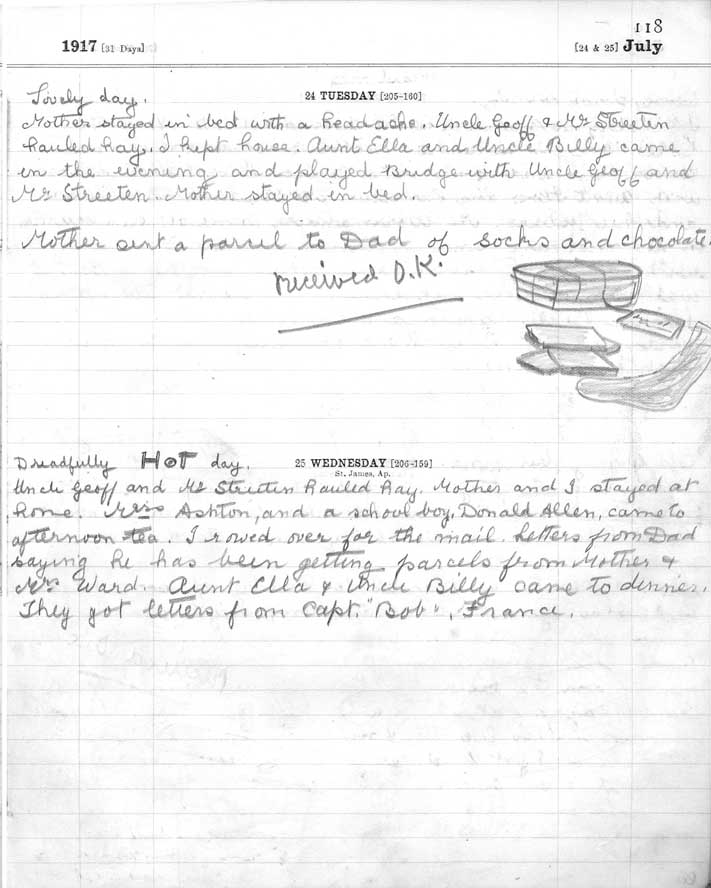 118
1917 [31 Days] [24 & 25] July
24 TUESDAY [205-160]
Lovely day.
Mother stayed in bed with a headache. Uncle Geoff & Mr Streeten
hauled hay. I kept house. Aunt Ella and Uncle Billy came
in the evening and played Bridge with Uncle Geoff and
Mr Streeten. Mother stayed in bed.
Mother sent a parcel to Dad of socks and chocolate.
received O.K.
25 WEDNESDAY [206-159]
St. James, Ap.
Dreadfully HOT day.
Uncle Geoff and Mr Streeten hauled hay. Mother and I stayed at
home. Mrs Ashton, and a school boy, Donald Allen, came to
afternoon tea. I rowed over for the mail. Letters from Dad
saying he has been getting parcels from Mother &
Mrs Ward. Aunt Ella & Uncle Billy came to dinner.
They got letters from Capt. "Bob", France.